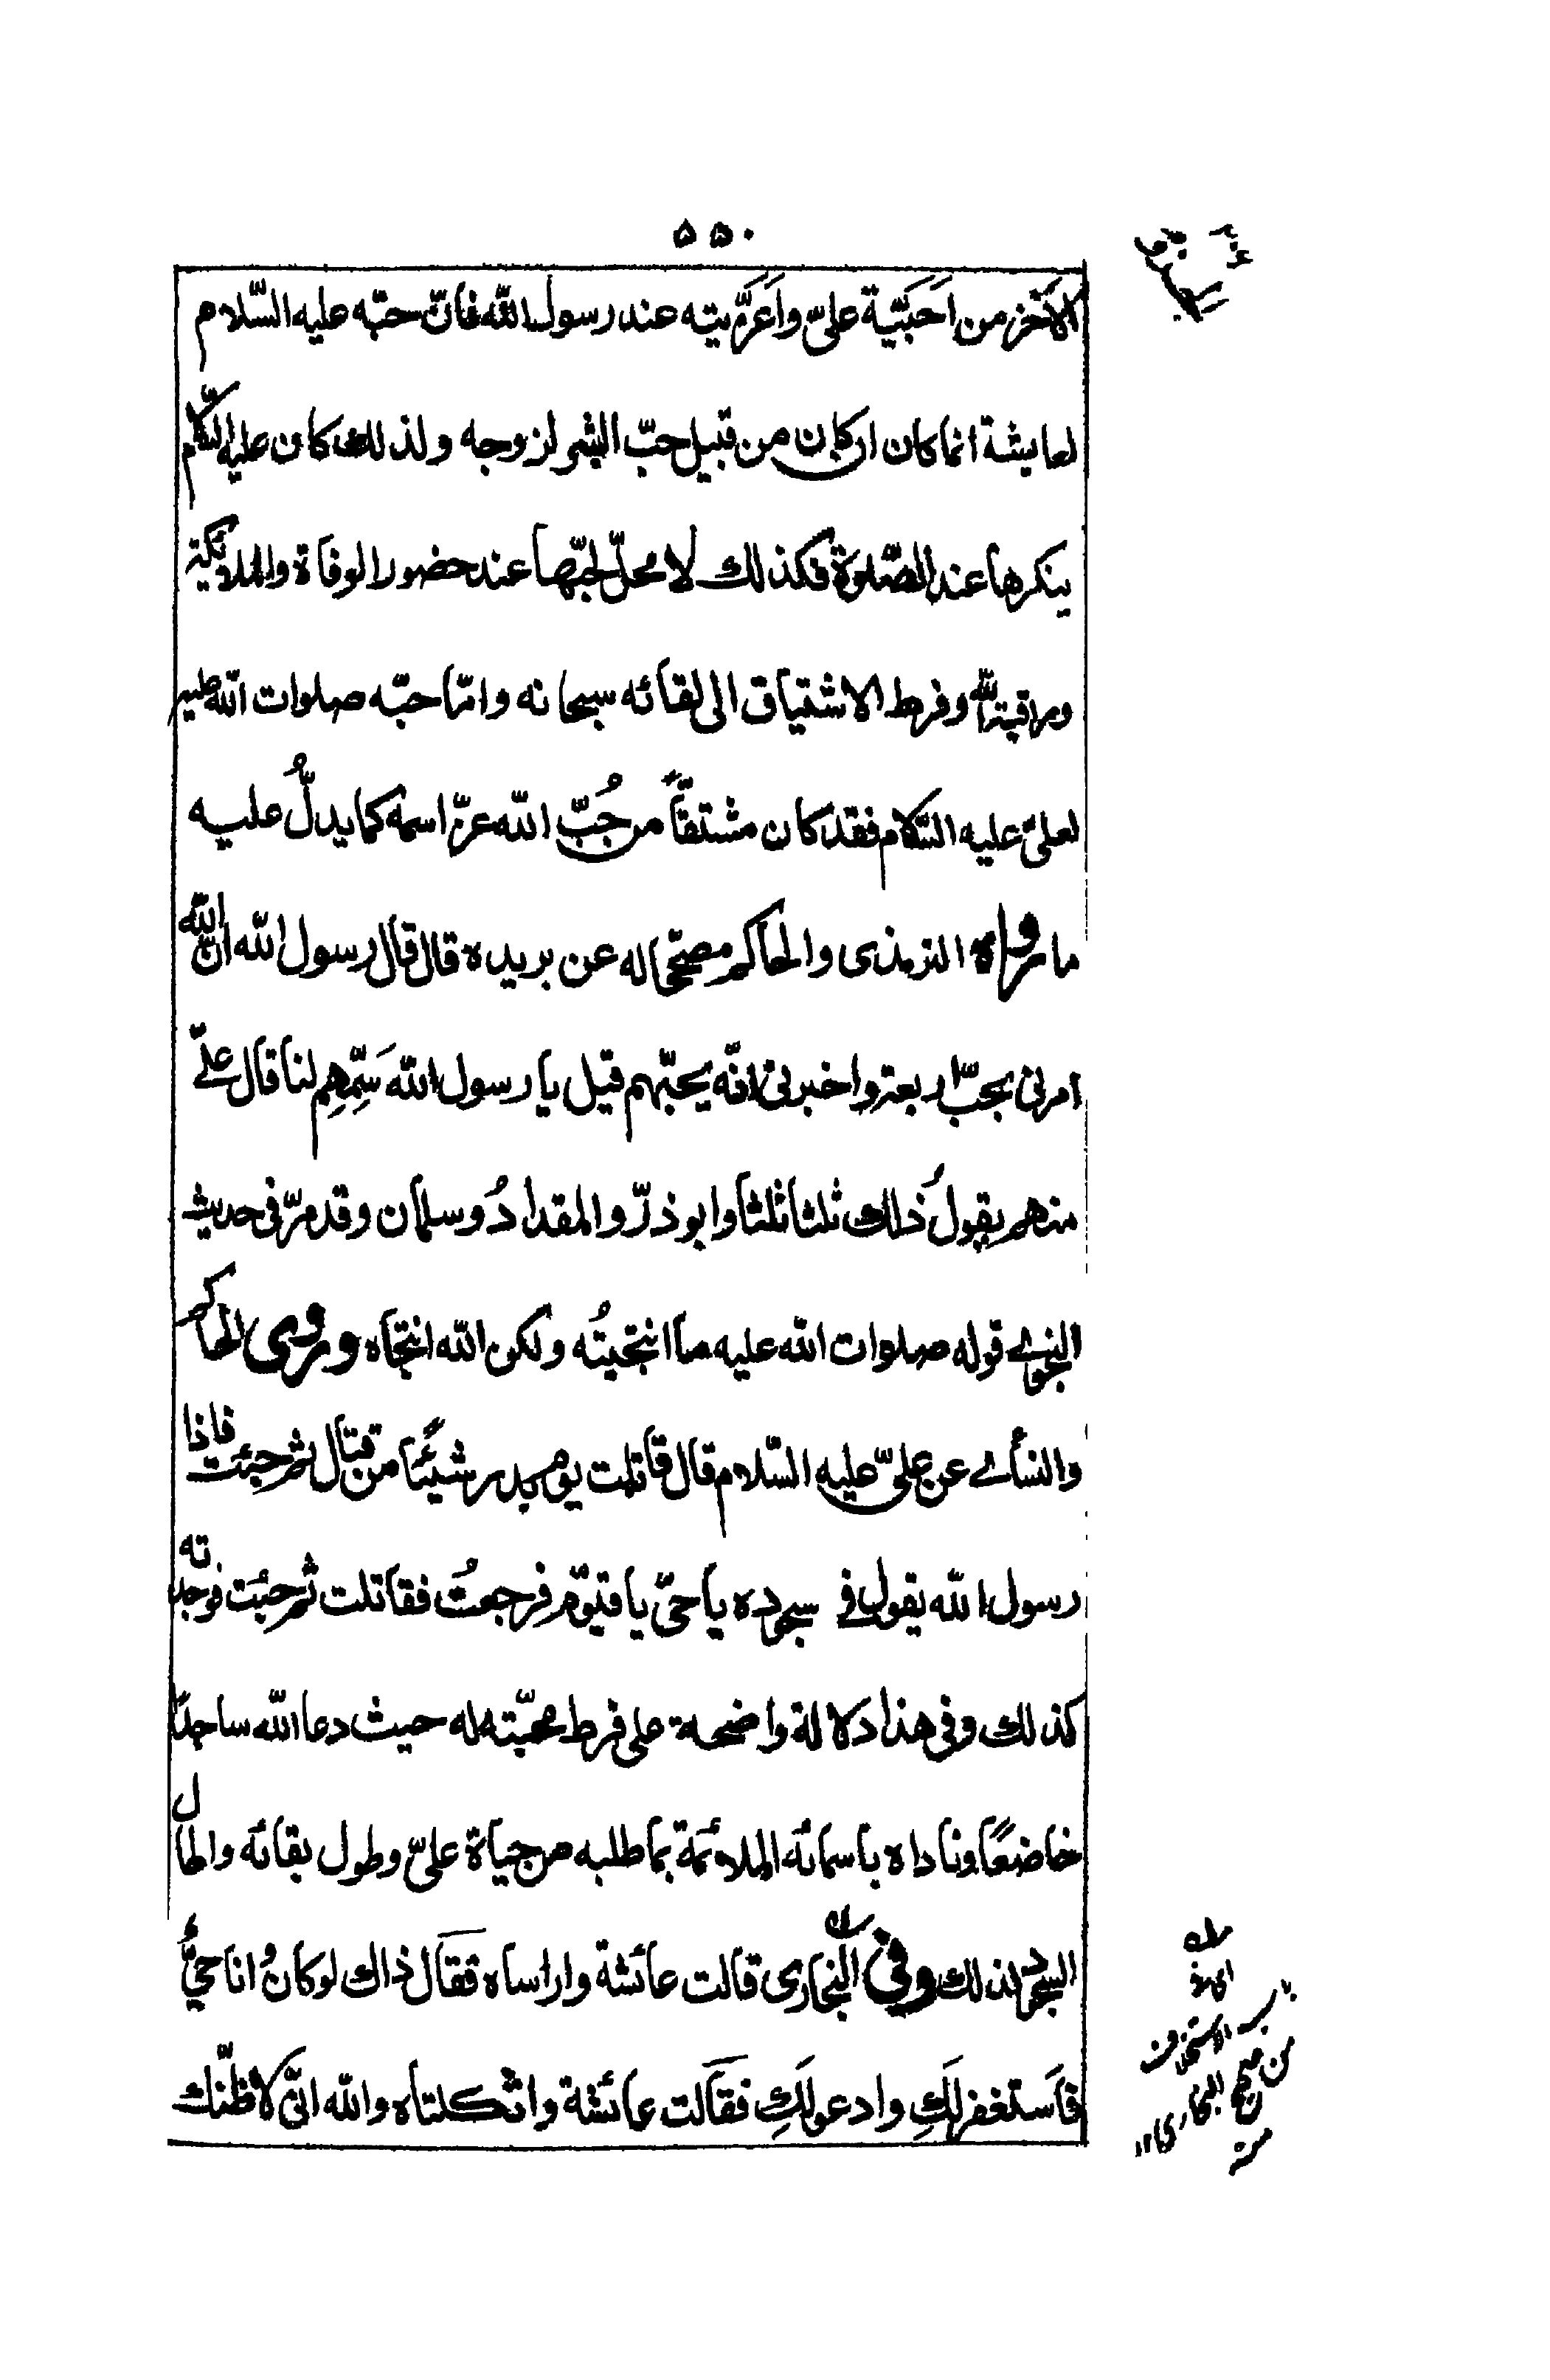 ۵۵۰
الآخر من اَحَبّيّة علىّ واَعَزّيته عند رسول الله فانّ حبّه عليه السّلام
لعايشة انما كان ان كان من قبيل حبّ البشر لزوجه ولذلك كان عليه السّلام
ينكرها عند الصّلوة فكذلك لا محلّ لحبّها عند حضور الوفاة والملائكة
ومراقبة الله وفرط الاشتياق الى لقائه سبحانه وامّا حبّه صلوات الله عليه
لعلىّ عليه السّلام فقد كان مشتقّاً من حُبّ الله عزّ اسمه كما يدلُّ عليه
ما رواه الترمذى والحاكم مصحّحا له عن بريده قال قال رسول الله انّ الله
امرنى بحبّ اربعة واخبرنى انّه يحبّهم قيل يا رسول الله سَمِّهِم لنا قال علىّ
منهم يقولُ ذلك ثلثا ثلثا وابو ذرّ والمقدادُ وسلمان وقد مرّ فى حديث
النجوى قوله صلوات الله عليه ما انتجيتُه ولكن الله انتجاه وروى الحاكم
والنسأے عن علىّ عليه السّلام قال قاتلت يوم بدر شيئًا من قتال ثم جئت فاذا
رسول الله يقول فى سجوده يا حىّ يا قيّوم فرجعتُ فقاتلت ثم جئت فوجدته
كذلك وفى هذا دلالة واضحة على فرط محبّته له حيث دعا الله ساجدًا
خاضعًا وناداه باسمائه الملائمة بما طلبه من حياة علىّ وطول بقائه والحال
السجود لذلك وفى البخارى قالت عائشة واراساه فقال ذاك لو كان وانا حىٌّ
فاَستغفر لَكِ وادعو لَكِ فقالت عائشة واثكلتاه والله انّى لاظنّك
باب الاستخلاف
من صحيح البخارى ۱۲
منه